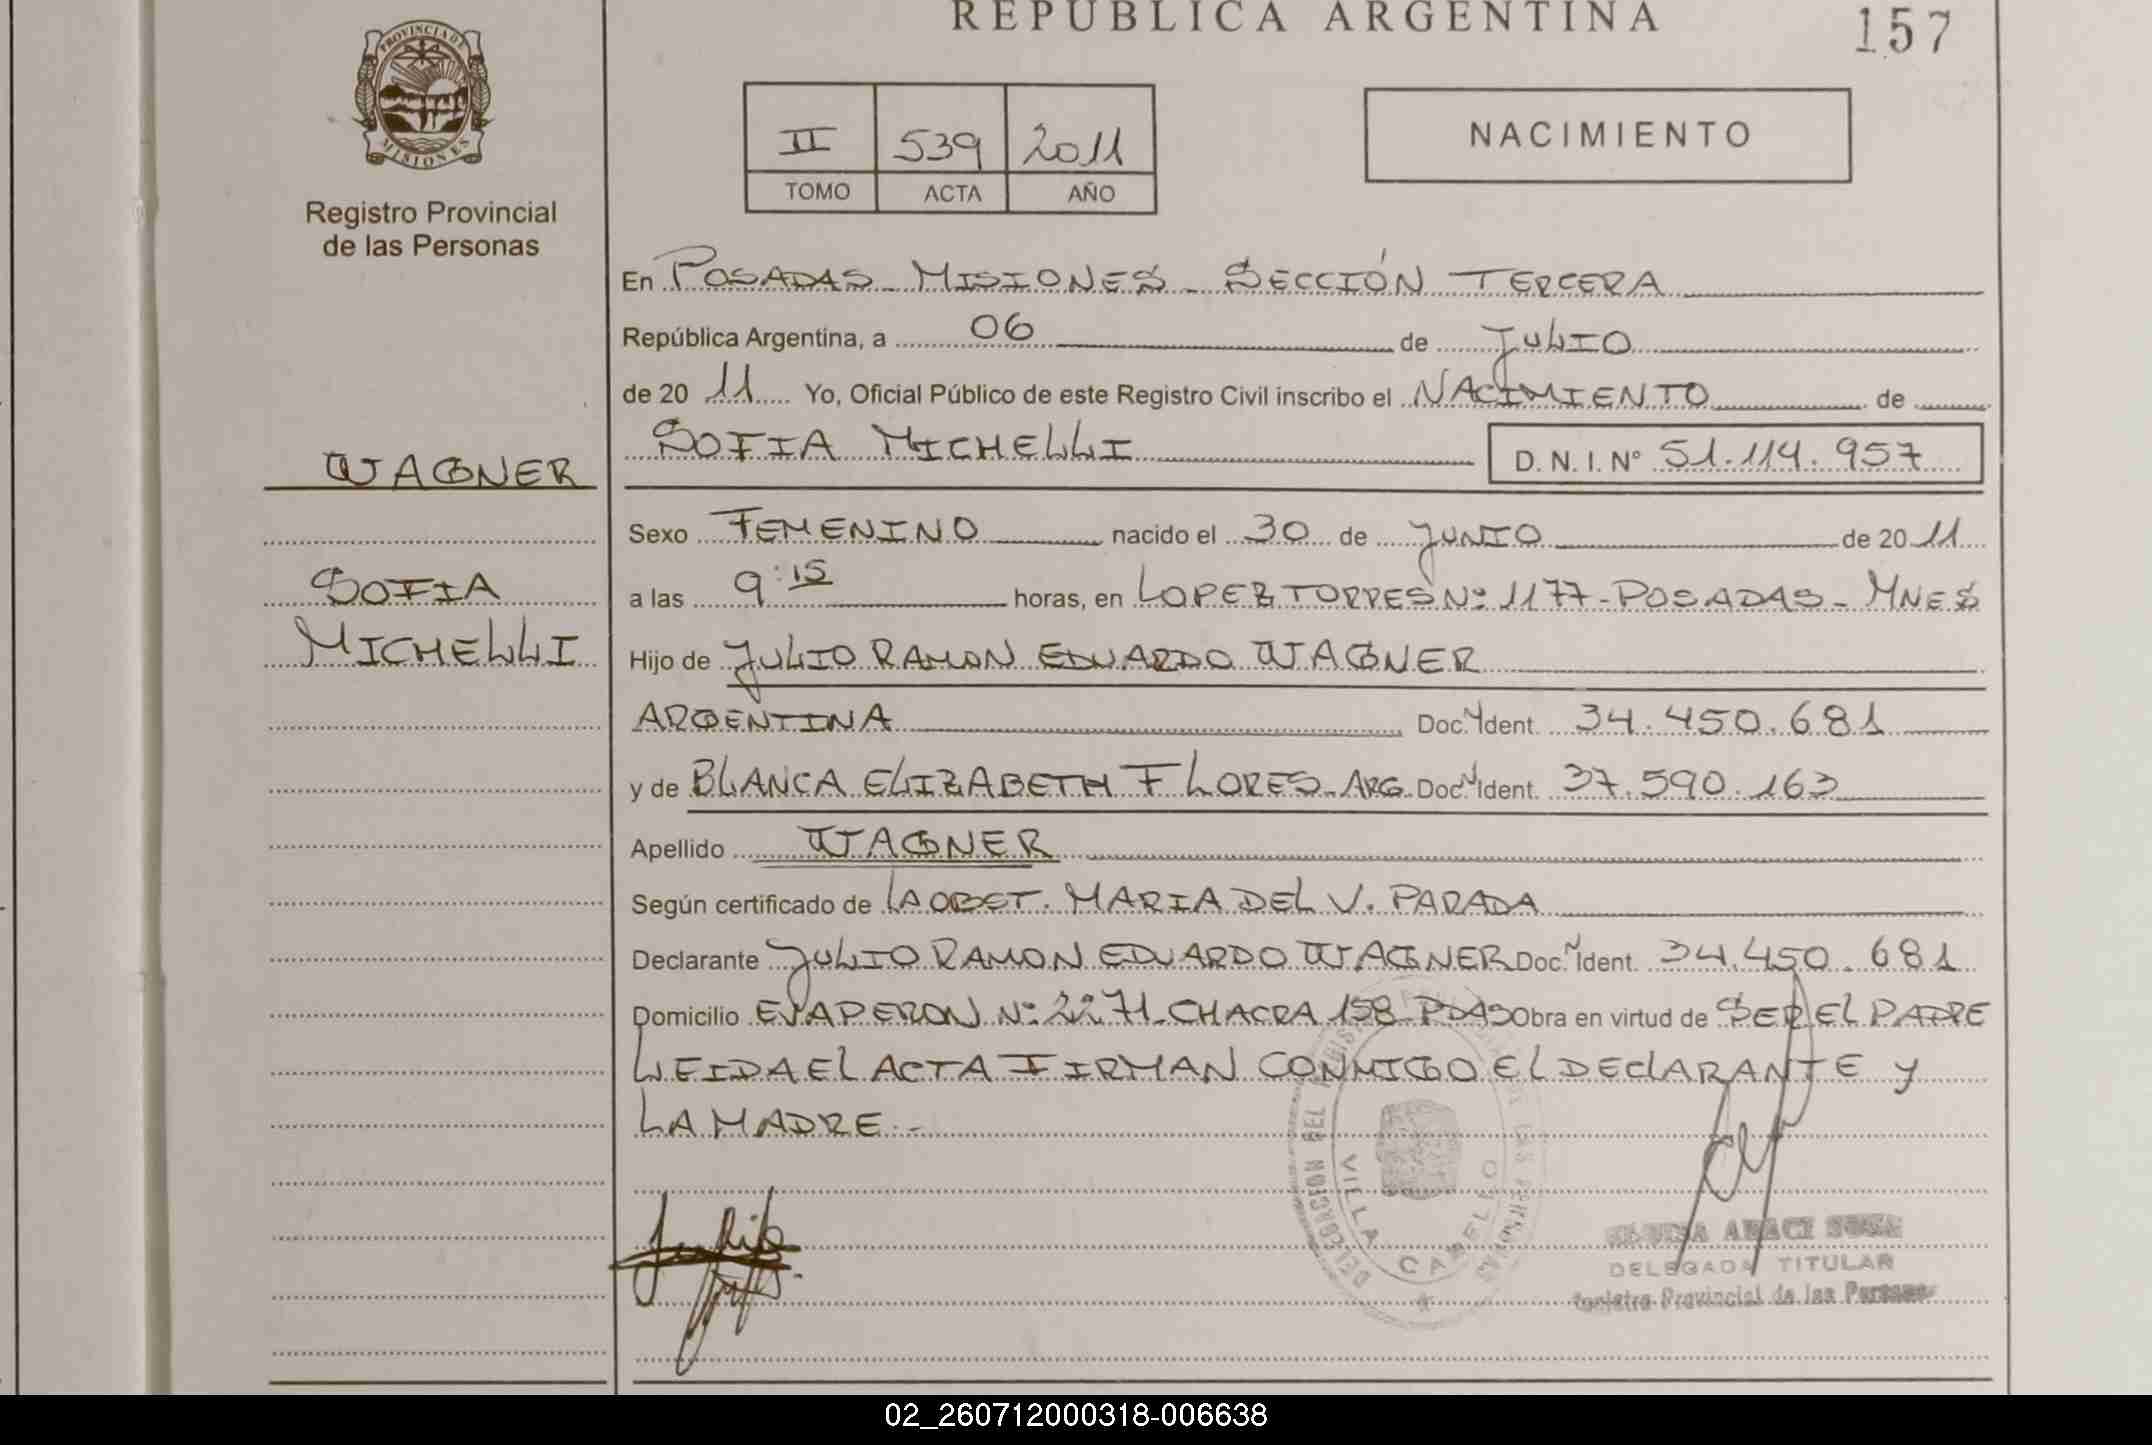 REPUBLICA ARGENTINA
157
PROVINCIA DE
MISIONES
Registro Provincial
de las Personas
II 539 2011
TOMO ACTA AÑO
NACIMIENTO
En POSADAS - MISIONES - SECCIÓN TERCERA
República Argentina, a 06 de JULIO
de 20 11 Yo, Oficial Público de este Registro Civil inscribo el NACIMIENTO de
SOFIA MICHELLI D.N.I. Nº 51.114.957
WAGNER
SOFIA
MICHELLI
Sexo FEMENINO nacido el 30 de JUNIO de 20 11
a las 9:15 horas, en LOPEZ TORRES Nº 1177 - POSADAS - MNES
Hijo de JULIO RAMON EDUARDO WAGNER
ARGENTINA Doc. Ident. 34.450.681
y de BLANCA ELIZABETH FLORES - ARG. Doc. Ident. 37.590.163
Apellido WAGNER
Según certificado de LA OBST. MARIA DEL V. PARADA
Declarante JULIO RAMON EDUARDO WAGNER Doc. Ident. 34.450.681
Domicilio EVA PERON Nº 2271 - CHACRA 158 - PDAS Obra en virtud de SER EL PADRE
LEIDA EL ACTA FIRMAN CONMIGO EL DECLARANTE Y
LA MADRE.-
DELEGACION DEL REGISTRO PROVINCIAL DE LAS PERSONAS
VILLA CABELLO
DELEGADA TITULAR
Registro Provincial de las Personas
02_260712000318-006638